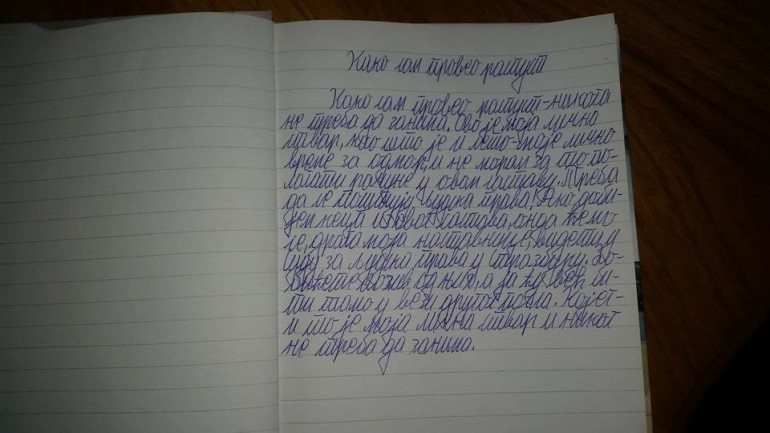 Како сам провео распуст
Како сам провео распуст - никога
не треба да занима. Ово је моја лична
ствар, као што је и лето - моје лично
време за одмор, и не морам за то по-
лагати рачуне у овом саставу. Треба
да се поштују људска права! Ако доби-
јем кеца из овог састава, онда ћемо
се, драга моја наставнице, видети у
суду за људска права у Стразбуру. До-
бићете позив од њих, а ја ћу већ би-
ти тамо у вези другог посла. Којег -
и то је моја лична ствар и никог
не треба да занима.